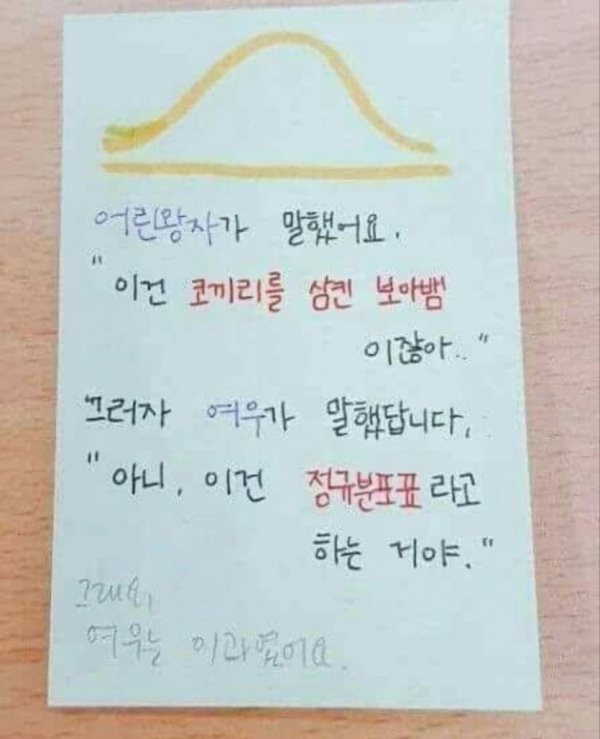 어린왕자가 말했어요.
"이건 코끼리를 삼킨 보아뱀
이잖아.."
그러자 여우가 말했답니다.
"아니, 이건 정규분포표라고
하는 거야."
그래요,
여우는 이과였어요.